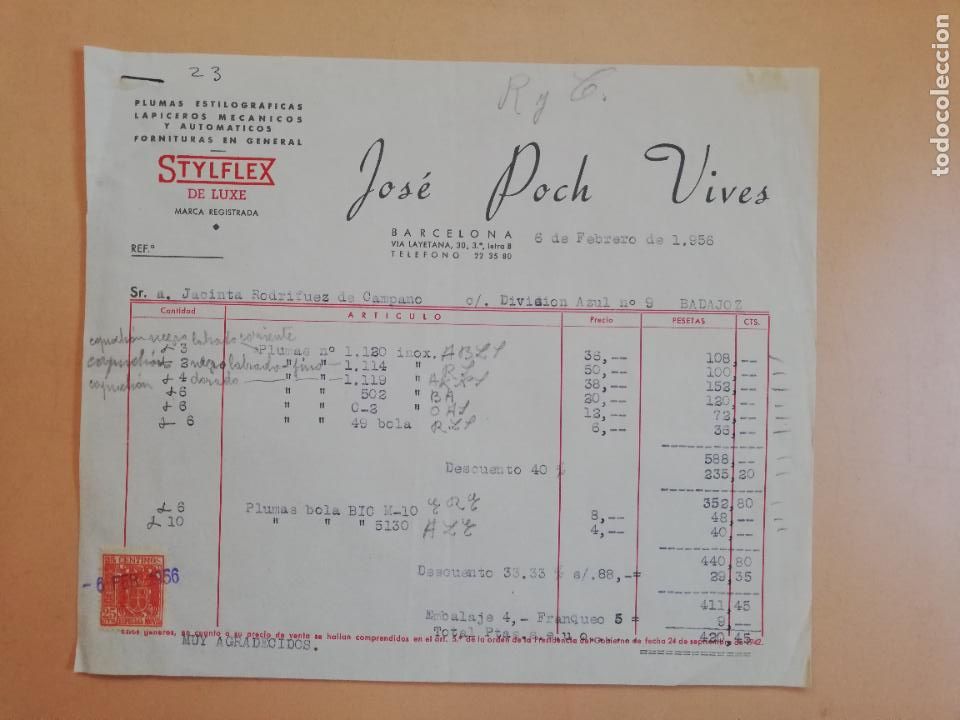 23
R y C.
PLUMAS ESTILOGRAFICAS
LAPICEROS MECANICOS
Y AUTOMATICOS
FORNITURAS EN GENERAL
STYLFLEX
DE LUXE
MARCA REGISTRADA
José Poch Vives
BARCELONA
VIA LAYETANA, 30, 3.º, letra 8
TELEFONO 22 35 80
6 de Febrero de 1.956
REF.ª
Sr. a. Jacinta Rodrifuez de Campano c/. Division Azul nº 9 BADAJOZ
Cantidad ARTICULO Precio PESETAS CTS.
negro labrado corriente
3 Plumas nº 1.120 inox. 36,-- 108,--
2 negro labrado fino " " 1.114 " 50,-- 100,--
4 dorado " " 1.119 " 38,-- 152,--
6 " " 502 BA 20,-- 120,--
6 " " 0-2 " 12,-- 72,--
6 " " 49 bola 6,-- 36,--
588,--
Descuento 40 % 235,20
352,80
6 Plumas bola BIC M-10 8,-- 48,--
10 " " " 5130 4,-- 40,--
440,80
Descuento 33.33 % s/.88,-= 29,35
411,45
Embalaje 4,- Franqueo 5 = 9,--
Total Ptas s.e.u.o. 420,45
25 CENTIMOS
- 6 FEB 1956
25
ESPECIAL MOVIL
enos géneros, en cuanto a su precio de venta se hallan comprendidos en el art. 5.º de la orden de la Presidencia del Gobierno de fecha 24 de septiembre de 1942.
MUY AGRADECIDOS.
todocoleccion.net